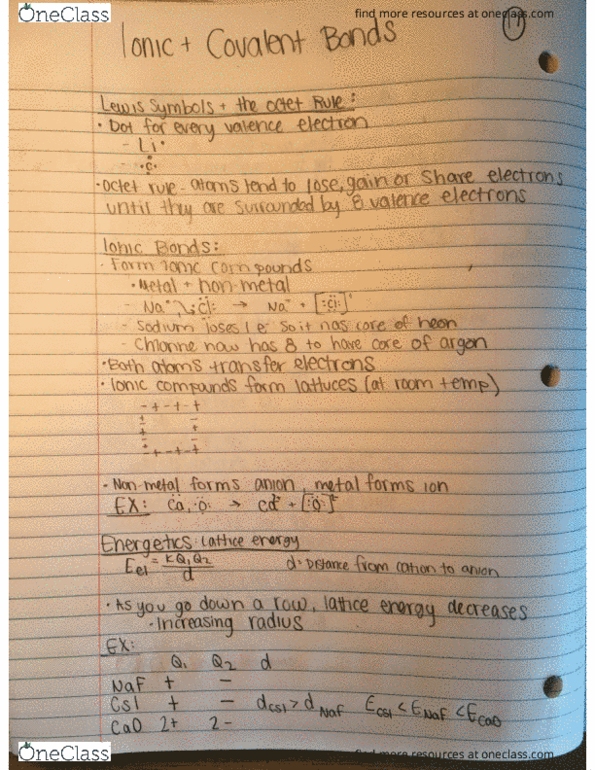 OneClass
find more resources at oneclass.com
11
Ionic + Covalent Bonds
Lewis Symbols + the octet Rule:
• Dot for every valence electron
- Li •
- •C•
• Octet rule - atoms tend to lose, gain or share electrons
until they are surrounded by 8 valence electrons
Ionic Bonds:
- Form ionic compounds
• Metal + non-metal
- Na Cl → Na + [:Cl:]
- Sodium loses 1 e⁻ so it has core of neon
- Chlorine now has 8 to have core of argon
• Both atoms transfer electrons
• Ionic compounds form lattuces (at room temp)
- + - + - +
+ -
- +
+ -
- + - + - +
• Non-metal forms anion, metal forms ion
EX: Ca, O → Ca²⁺ + [:O:]²⁻
Energetics: Lattice energy
Eel = KQ₁Q₂ / d d = Distance from cation to anion
• As you go down a row, lattice energy decreases
- Increasing radius
EX:
Q₁ Q₂ d
NaF + -
CsI + - dCsI > dNaF ECsI < ENaF < ECaO
CaO 2+ 2-
OneClass
find more resources at oneclass.com